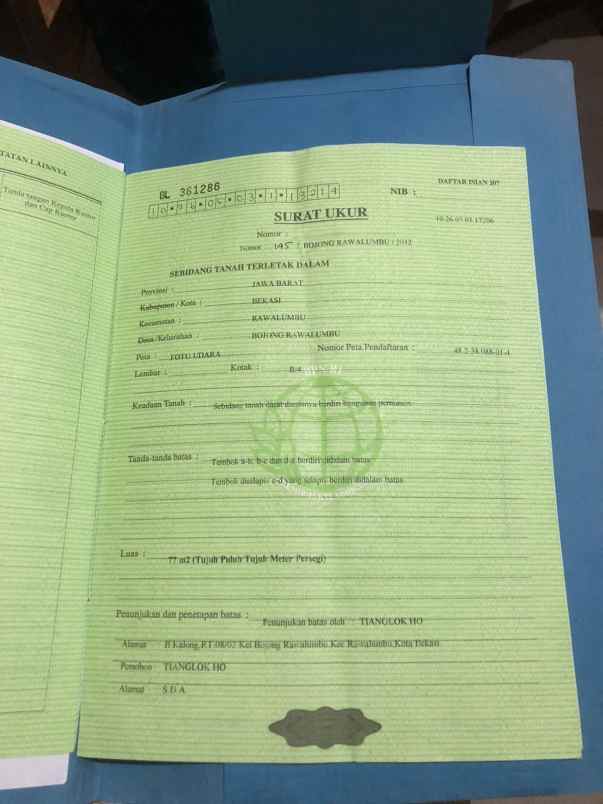 TATAN LAINNYA
Tanda tangan Kepala Kantor
dan Cap Kantor
DAFTAR ISIAN 207
BL 361286
NIB :
10•26•05•03•1•13214
SURAT UKUR
10.26.05.03.17206
Nomor :
Nomor 195 / BOJONG RAWALUMBU / 2012
SEBIDANG TANAH TERLETAK DALAM
Provinsi : JAWA BARAT
Kabupaten / Kota : BEKASI
Kecamatan : RAWALUMBU
Desa /Kelurahan : BOJONG RAWALUMBU
Peta : FOTO UDARA Nomor Peta Pendaftaran : 48.2-38.088-01-4
Lembar : Kotak : B-4
Keadaan Tanah : Sebidang tanah darat diatasnya berdiri bangunan permanen
Tanda-tanda batas : Tembok a-b, b-c dan d-a berdiri didalam batas
Tembok duslapis c-d yang selapis berdiri didalam batas
Luas : 77 m2 (Tujuh Puluh Tujuh Meter Persegi)
Penunjukan dan penetapan batas : Penunjukan batas oleh : TIANGLOK HO
Alamat Jl Kalong, RT 08/02 Kel Bojong Rawalumbu Kec Rawalumbu, Kota Bekasi
Pemohon TIANGLOK HO
Alamat S D A